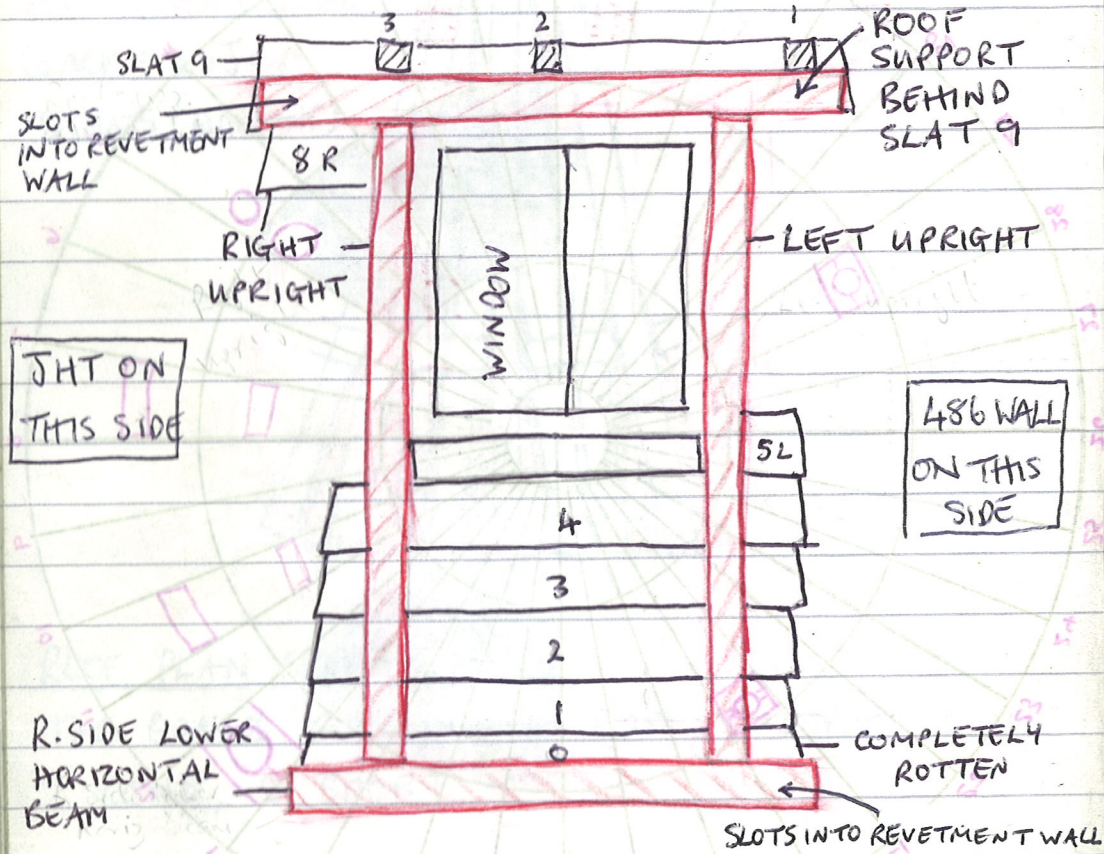 3 2 1
SLAT 9
ROOF
SUPPORT
BEHIND
SLAT 9
SLOTS
INTO REVETMENT
WALL
8 R
RIGHT
UPRIGHT
WINDOW
LEFT UPRIGHT
JHT ON
THIS SIDE
486 WALL
ON THIS
SIDE
5L
4
3
2
1
0
R. SIDE LOWER
HORIZONTAL
BEAM
COMPLETELY
ROTTEN
SLOTS INTO REVETMENT WALL